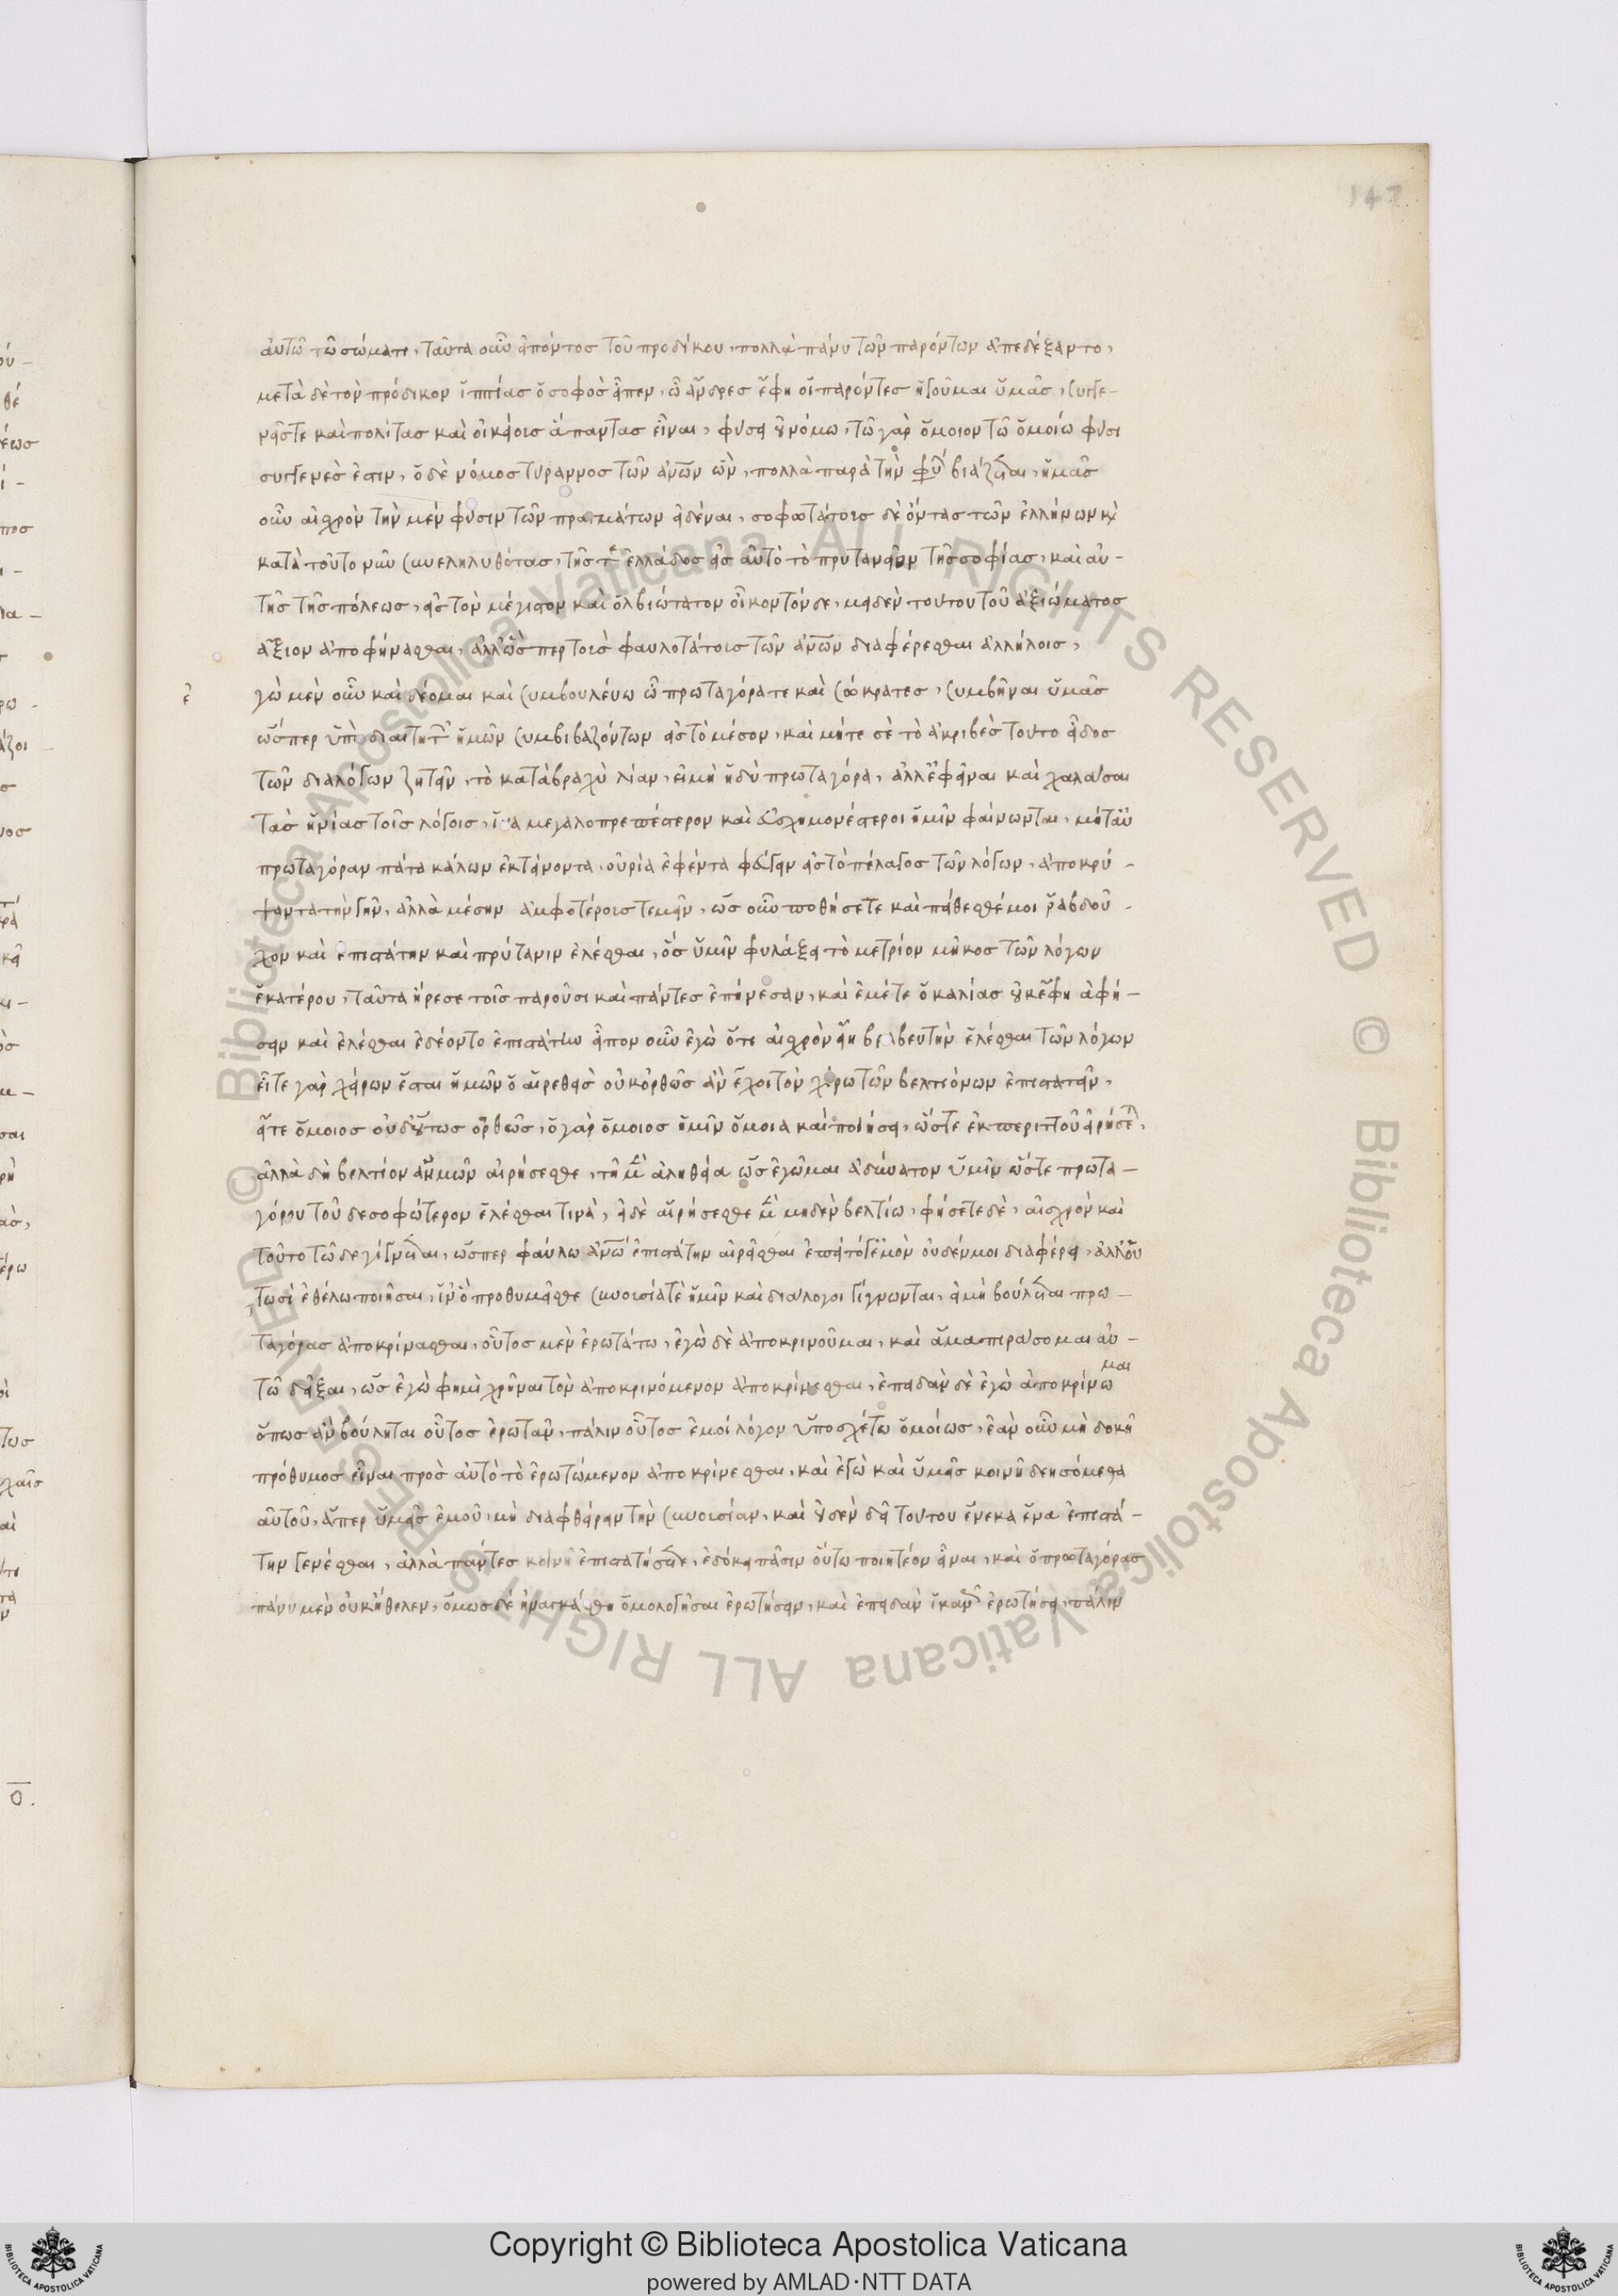 147
αὐτῶ τῶ σώματι, ταῦτα οὖν εἰπόντος τοῦ προδίκου, πολλοὶ πάνυ τῶν παρόντων ἀπεδέξαντο,
μετὰ δὲ τὸν πρόδικον ἱππίας ὁ σοφὸς εἶπεν, ὦ ἄνδρες ἔφη οἱ παρόντες ἡγοῦμαι ὑμᾶς, συγγε-
νεῖς τε καὶ πολίτας καὶ οἰκείους ἅπαντας εἶναι, φύσει οὐ νόμω, τῶ γὰρ ὅμοιον τῶ ὁμοίω φύσι
συγγενές ἐστιν, ὁ δὲ νόμος τύραννος τῶν ἀνων ὢν, πολλὰ παρὰ τὴν φύ βιάζεται, ἡμᾶς
οὖν αἰσχρὸν τὴν μὲν φύσιν τῶν πραγμάτων εἰδέναι, σοφωτάτους δὲ ὄντας τῶν ἑλλήνων κὶ
κατὰ τοῦτο νῦν συνεληλυθότας, τῆς τε ἑλλάδος εἰς αὐτὸ τὸ πρυτανεῖον τῆς σοφίας, καὶ αὐ-
τῆς τῆς πόλεως, εἰς τὸν μέγιστον καὶ ὀλβιώτατον οἶκον τόνδε, μηδὲν τούτου τοῦ ἀξιώματος
ἄξιον ἀποφήνασθαι, ἀλλ' ὥσπερ τοὺς φαυλοτάτους τῶν ἀνων διαφέρεσθαι ἀλλήλοις,
ἐ γὼ μὲν οὖν καὶ δέομαι καὶ συμβουλεύω ὦ πρωταγόρα τε καὶ σώκρατες, συμβῆναι ὑμᾶς
ὥσπερ ὑπὸ διαιτητ ἡμῶν συμβιβαζόντων εἰς τὸ μέσον, καὶ μήτε σὲ τὸ ἀκριβὲς τοῦτο εἶδος
τῶν διαλόγων ζητεῖν, τὸ κατὰ βραχὺ λίαν, εἰ μὴ ἡδὺ πρωταγόρα, ἀλλ' ἐφεῖναι καὶ χαλάσαι
τὰς ἡνίας τοῖς λόγοις, ἵνα μεγαλοπρεπέστερον καὶ εὐσχημονέστεροι ἡμῖν φαίνωνται, μήτ' αὖ
πρωταγόραν πάτα κάλων ἐκτείνοντα, οὐρία ἐφέντα φεύγειν εἰς τὸ πέλαγος τῶν λόγων, ἀποκρύ-
ψαντα τὴν γῆν, ἀλλὰ μέσην ἀμφοτέρους τεμεῖν, ὡς οὖν ποθήσετε καὶ πείθεσθέ μοι ῥαβδοῦ-
χον καὶ ἐπιστάτην καὶ πρύτανιν ἑλέσθαι, ὃς ὑμῖν φυλάξει τὸ μετρίον μῆκος τῶν λόγων
ἑκατέρου, ταῦτα ἤρεσε τοῖς παροῦσι καὶ πάντες ἐπήνεσαν, καὶ ἐμέ τε ὁ καλίας οὐκ ἔφη ἀφή-
σειν καὶ ἑλέσθαι ἐδέοντο ἐπιστάτην εἶπον οὖν ἐγὼ ὅτι αἰσχρὸν εἴη βραβευτὴν ἑλέσθαι τῶν λόγων
εἴτε γὰρ χείρων ἔσται ἡμῶν ὁ αἱρεθεὶς οὐκ ὀρθῶς ἂν ἔχοι τὸν χείρω τῶν βελτιόνων ἐπιστατεῖν,
εἴτε ὅμοιος οὐδ' οὕτως ὀρθῶς, ὁ γὰρ ὅμοιος ἡμῖν ὅμοια καὶ ποιήσει, ὥστε ἐκ περιττοῦ εἰρήσετ,
ἀλλὰ δὴ βελτίον' ἡμῶν αἱρήσεσθε, τῆ μὲν ἀληθεία ὡς ἐγῶμαι ἀδύνατον ὑμῖν ὥστε πρωτα-
γόρου τοῦδε σοφώτερον ἑλέσθαι τινὰ, εἰ δὲ αἱρήσεσθε μὲν μηδὲν βελτίω, φήσετε δὲ, αἰσχρὸν καὶ
τοῦτο τῶδε γίγνεται, ὥσπερ φαύλω ἀνω ἐπιστάτην αἱρεῖσθαι ἐπεὶ τό γ' ἐμὸν οὐδέν μοι διαφέρει, ἀλλ' οὑ
τωσὶ ἐθέλω ποιῆσαι, ἵν' ὃ προθυμεῖσθε συνουσία τὲ ἡμῖν καὶ διάλογοι γίγνωνται, εἰ μὴ βούλεται πρω-
ταγόρας ἀποκρίνασθαι, οὗτος μὲν ἐρωτάτω, ἐγὼ δὲ ἀποκρινοῦμαι, καὶ ἅμα πιράσομαι αὐ-
τῶ δεῖξαι, ὡς ἐγὼ φημὶ χρῆναι τὸν ἀποκρινόμενον ἀποκρίνεσθαι, ἐπειδὰν δὲ ἐγὼ ἀποκρίνωμαι
ὅπως ἂν βούληται οὗτος ἐρωτᾶν, πάλιν οὗτος ἐμοὶ λόγον ὑποσχέτω ὁμοίως, ἐὰν οὖν μὴ δοκῆ
πρόθυμος εἶναι πρὸς αὐτὸ τὸ ἐρωτώμενον ἀποκρίνεσθαι, καὶ ἐγὼ καὶ ὑμεῖς κοινῆ δεησόμεθα
αὐτοῦ, ἅπερ ὑμεῖς ἐμοῦ, μὴ διαφθείρειν τὴν συνουσίαν, καὶ οὐδὲν δεῖ τούτου ἕνεκα ἕνα ἐπιστά-
την γενέσθαι, ἀλλὰ πάντες κοινῆ ἐπιστατήσετε, ἐδόκει πᾶσιν οὕτω ποιητέον εἶναι, καὶ ὁ πρωταγόρας
πάνυ μὲν οὐκ ἤθελεν, ὅμως δὲ ἠναγκάσθη ὁμολογῆσαι ἐρωτήσειν, καὶ ἐπειδὰν ἱκανῶς ἐρωτήσει, πάλιν
Copyright © Biblioteca Apostolica Vaticana
powered by AMLAD·NTT DATA